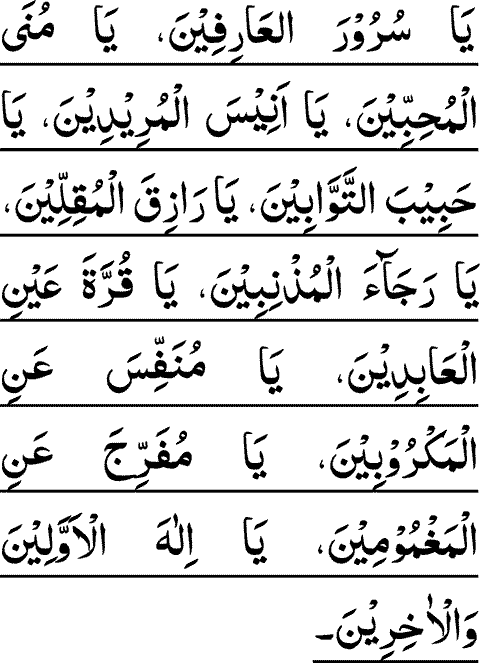 يَا سُرُوْرَ العَارِفِيْنَ، يَا مُنَى
الْمُحِبِّيْنَ، يَا اَنِيْسَ الْمُرِيْدِيْنَ، يَا
حَبِيْبَ التَّوَّابِيْنَ، يَا رَازِقَ الْمُقِلِّيْنَ،
يَا رَجَآءَ الْمُذْنِبِيْنَ، يَا قُرَّةَ عَيْنِ
الْعَابِدِيْنَ، يَا مُنَفِّسَ عَنِ
الْمَكْرُوْبِيْنَ، يَا مُفَرِّجَ عَنِ
الْمَغْمُوْمِيْنَ، يَا اِلٰهَ الْاَوَّلِيْنَ
وَالْاٰخِرِيْنَ۔